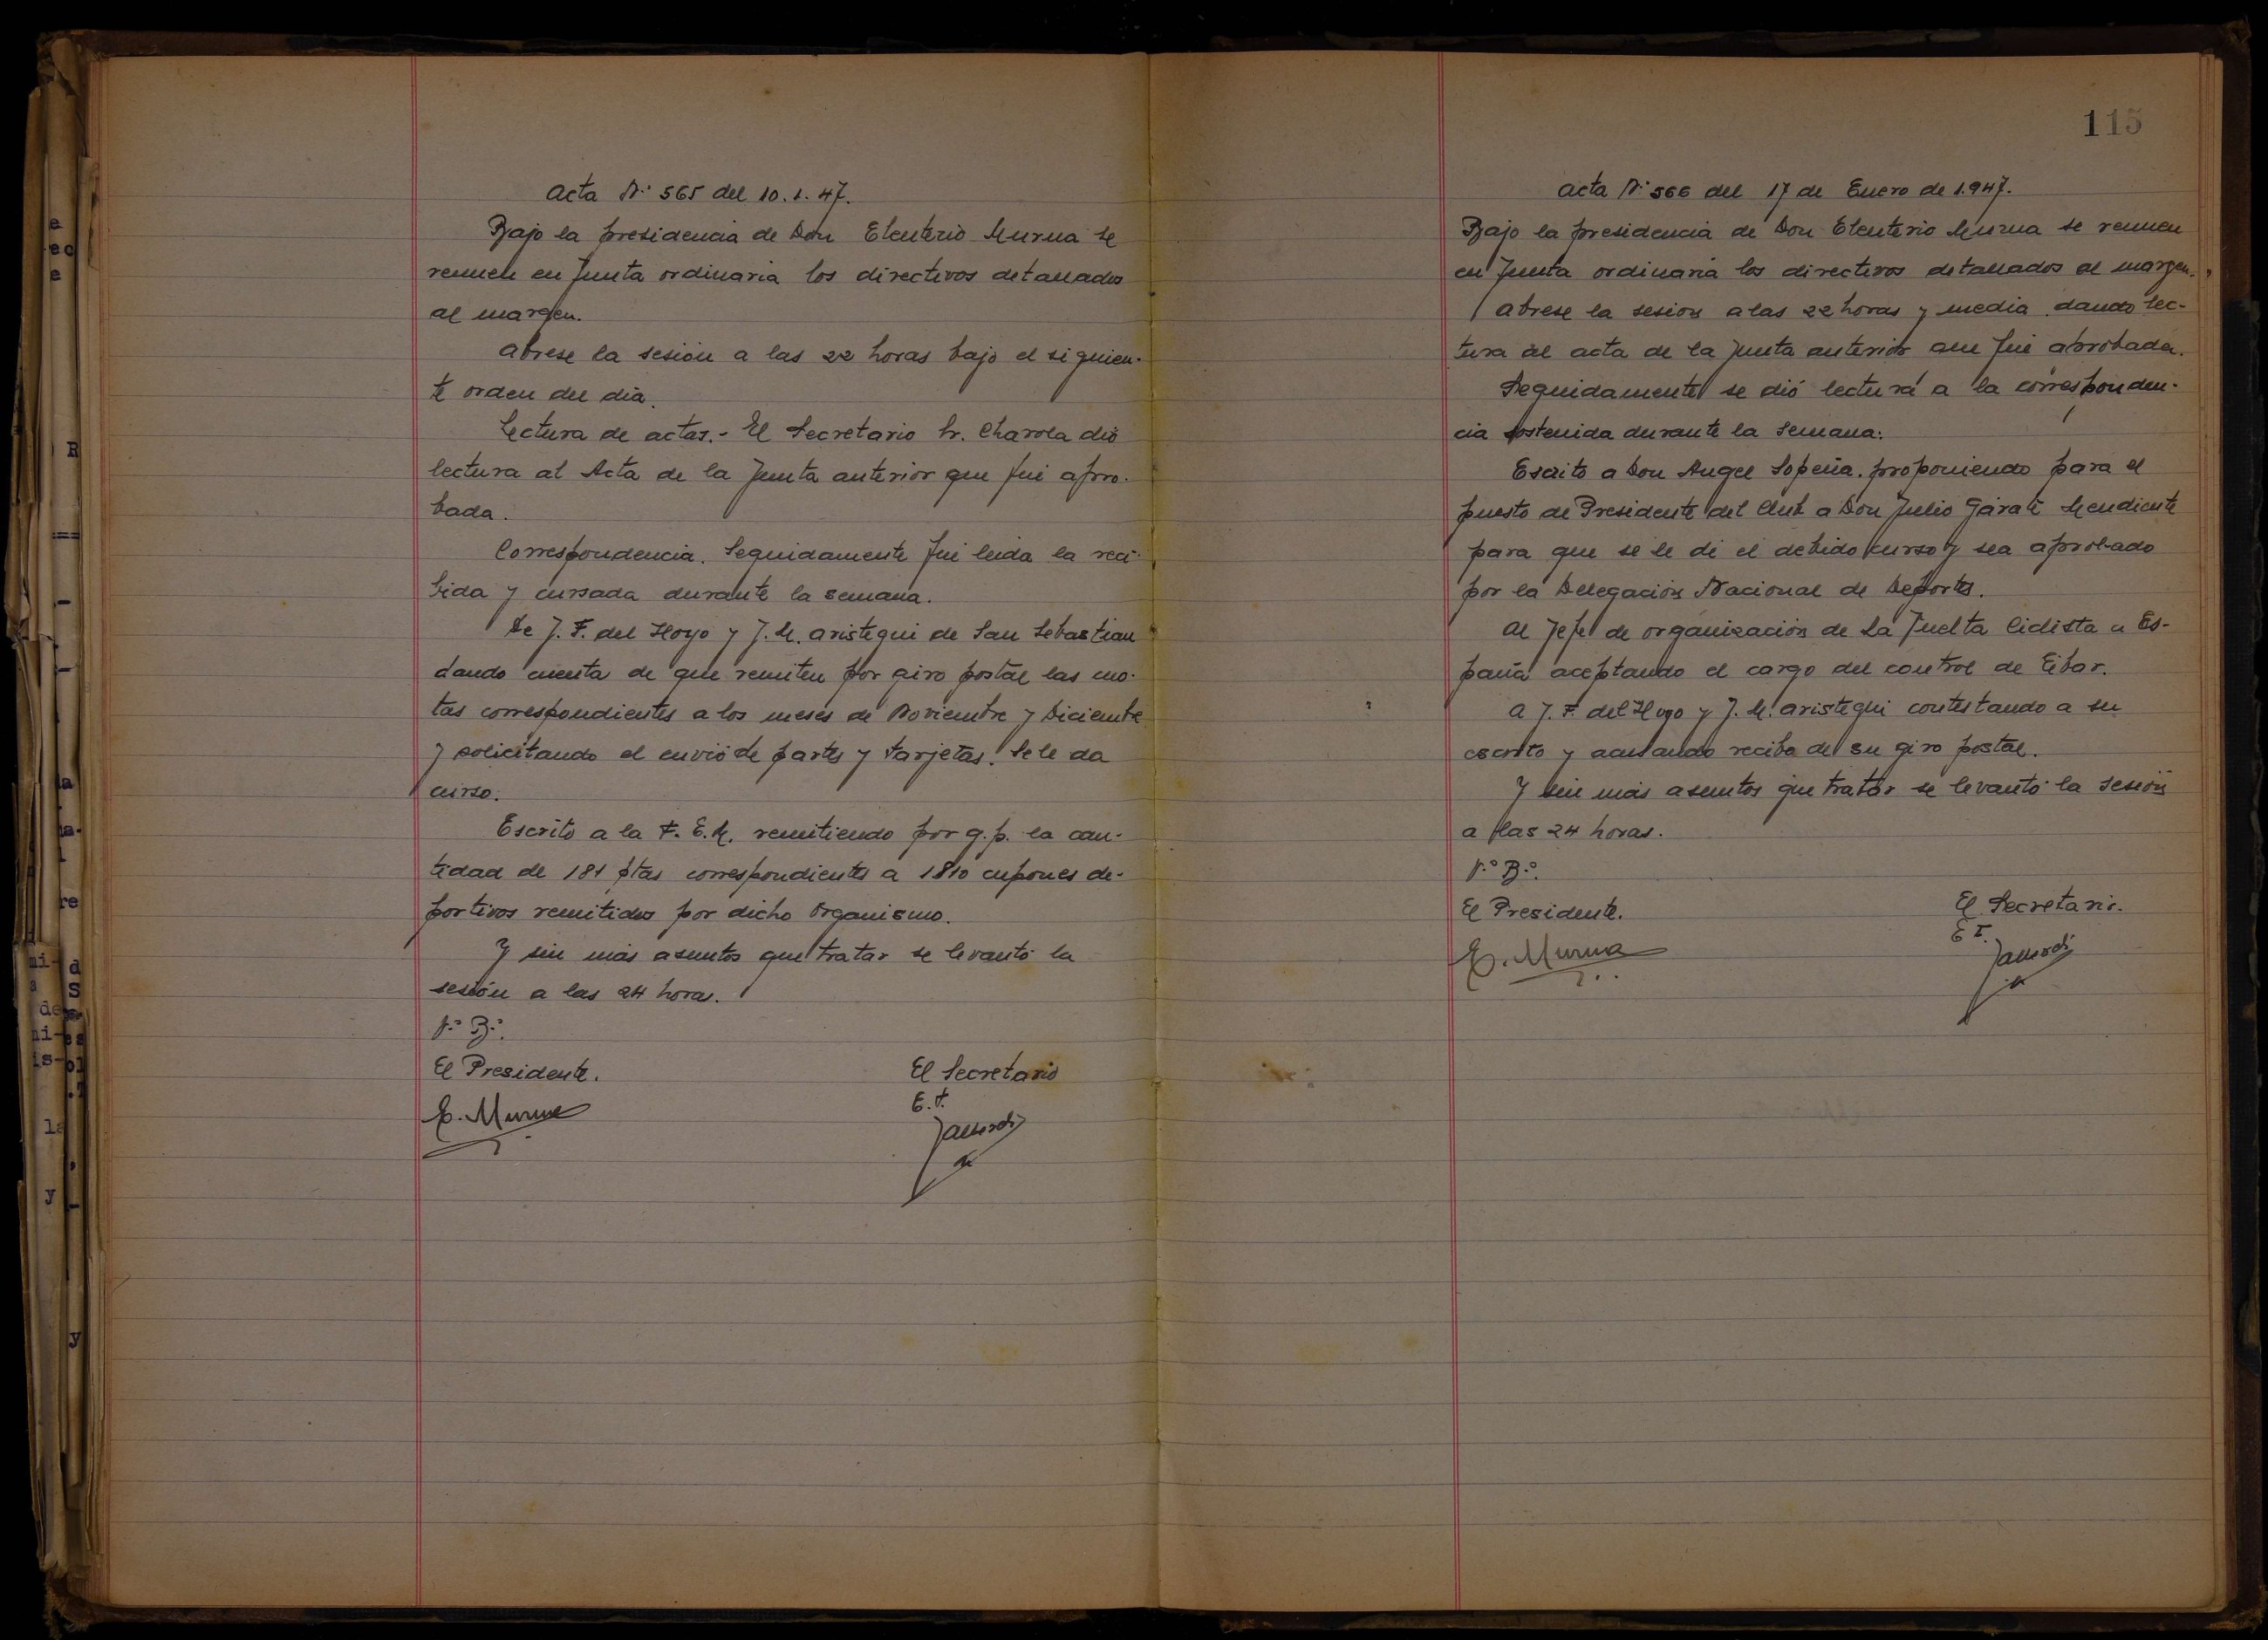 Acta Nº 565 del 10.1.47.
Bajo la presidencia de Don Eleuterio Murua se
reunen en Junta ordinaria los directivos detallados
al margen.
Abrese la sesión a las 22 horas bajo el siguien-
te orden del dia.
Lectura de actas.- El Secretario Sr. Charola dió
lectura al Acta de la Junta anterior que fué apro-
bada.
Correspondencia. Seguidamente fué leida la reci-
bida y cursada durante la semana.
De J. F. del Hoyo y J. M. Aristegui de San Sebastian
dando cuenta de que remiten por giro postal las cuo-
tas correspondientes a los meses de Noviembre y Diciembre
y solicitando el envió de partes y tarjetas. Se le da
curso.
Escrito a la F. E. M. remitiendo por g.p. la can-
tidad de 181 ptas correspondientes a 1810 cupones de-
portivos remitidos por dicho Organismo.
Y sin más asuntos que tratar se levantó la
sesión a las 24 horas.
Vº Bº.
El Presidente.
El Secretario
E. Murua
115
Acta Nº 566 del 17 de Enero de 1.947.
Bajo la presidencia de Don Eleuterio Murua se reunen
en Junta ordinaria los directivos detallados al margen.
Abrese la sesión a las 22 horas y media dando lec-
tura al acta de la Junta anterior que fué aprobada.
Seguidamente se dió lectura a la corresponden-
cia sostenida durante la semana.
Escrito a Don Angel Sopeña. proponiendo para el
puesto de Presidente del Club a Don Julio Gárate Mendicute
para que se le dé el debido curso y sea aprobado
por la Delegación Nacional de Deportes.
Al Jefe de organización de La Vuelta Ciclista a Es-
paña aceptando el cargo del control de Eibar.
A J. F. del Hoyo y J. M. Aristegui contestando a su
escrito y acusando recibo de su giro postal.
Y sin más asuntos que tratar se levantó la sesión
a las 24 horas.
Vº Bº.
El Presidente.
El Secretario.
E. Murua